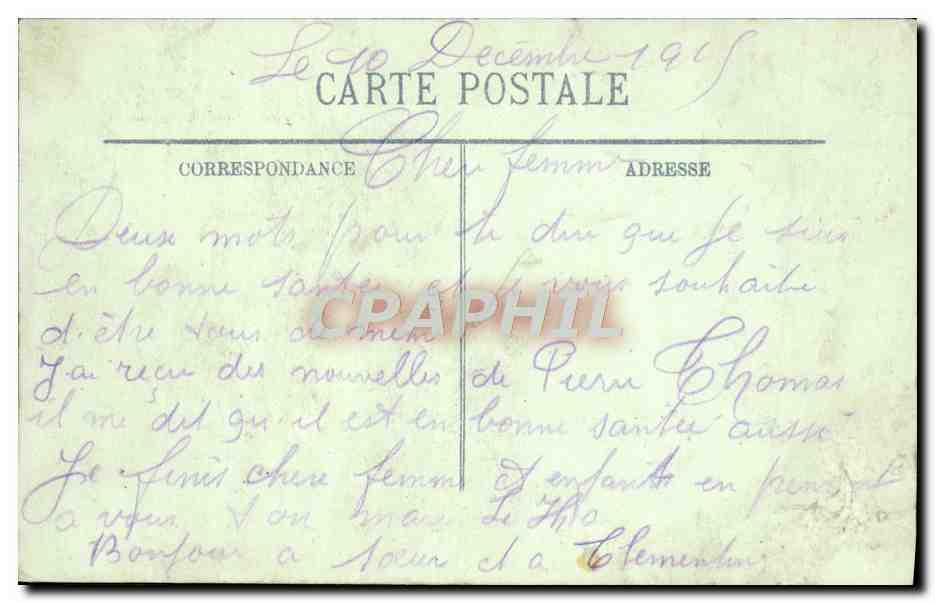 Le 10 Decembre 1915
CARTE POSTALE
CORRESPONDANCE
ADRESSE
Cher femme
Deux mots pour te dire que je suis
en bonne santée et je vous souhaite
d'être tous de meme
CPRAPHIL
J'ai reçu des nouvelles de Pierre Thomas
il me dit qu'il est en bonne santée aussi
Je finis chere femme et enfants en pensant
a vous ton mari Le
Bonjour a sœur et a Clementine